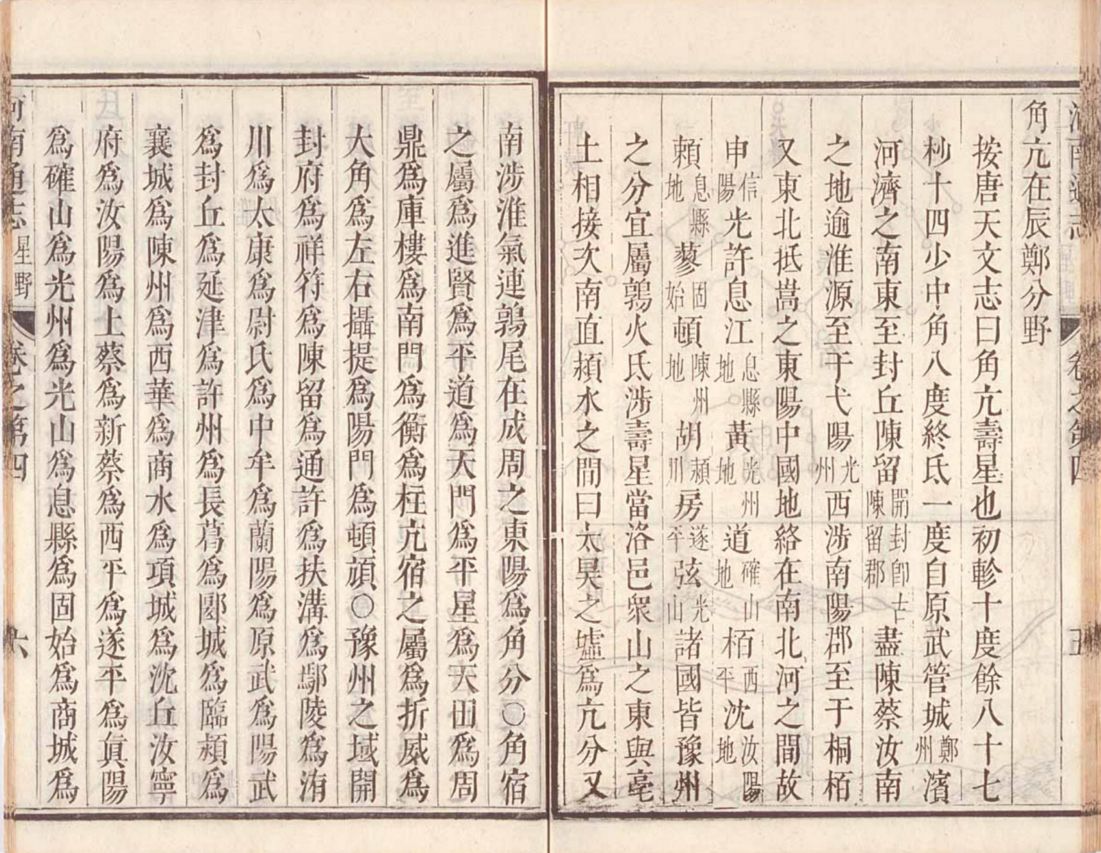 河南通志 星野 卷之第四 五
角亢在辰鄭分野
按唐天文志曰角亢壽星也初軫十度餘八十七
杪十四少中角八度終氐一度自原武管城鄭州濱
河濟之南東至封丘陳留開封卽古陳留郡盡陳蔡汝南
之地逾淮源至于弋陽光州西涉南陽郡至于桐栢
又東北抵嵩之東陽中國地絡在南北河之間故
申信陽光許息江息縣地黃光州地道確山地栢西平沈汝陽地
賴息縣地蓼固始頓陳州地胡潁川房遂平弦光山諸國皆豫州
之分宜屬鶉火氐涉壽星當洛邑眾山之東與亳
土相接次南直潁水之間曰太昊之墟為亢分又
南涉淮氣連鶉尾在成周之東陽為角分○角宿
之屬為進賢為平道為天門為平星為天田為周
鼎為庫樓為南門為衡為柱亢宿之屬為折威為
大角為左右攝提為陽門為頓頑○豫州之域開
封府為祥符為陳留為通許為扶溝為鄢陵為洧
川為太康為尉氏為中牟為蘭陽為原武為陽武
為封丘為延津為許州為長葛為郾城為臨潁為
襄城為陳州為西華為商水為項城為沈丘汝寧
府為汝陽為上蔡為新蔡為西平為遂平為眞陽
為確山為光州為光山為息縣為固始為商城為
河南通志 星野 卷之第四 六